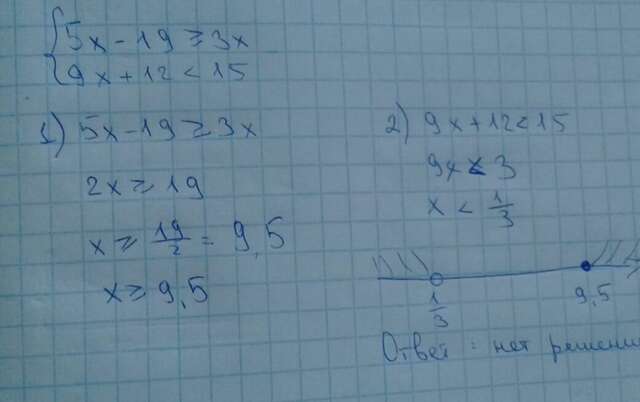 {5x - 19 ≥ 3x
9x + 12 < 15
1) 5x - 19 ≥ 3x
2x ≥ 19
x ≥ 19/2 = 9,5
x ≥ 9,5
2) 9x + 12 < 15
9x < 3
x < 1/3
1/3 9,5
Ответ: нет решени